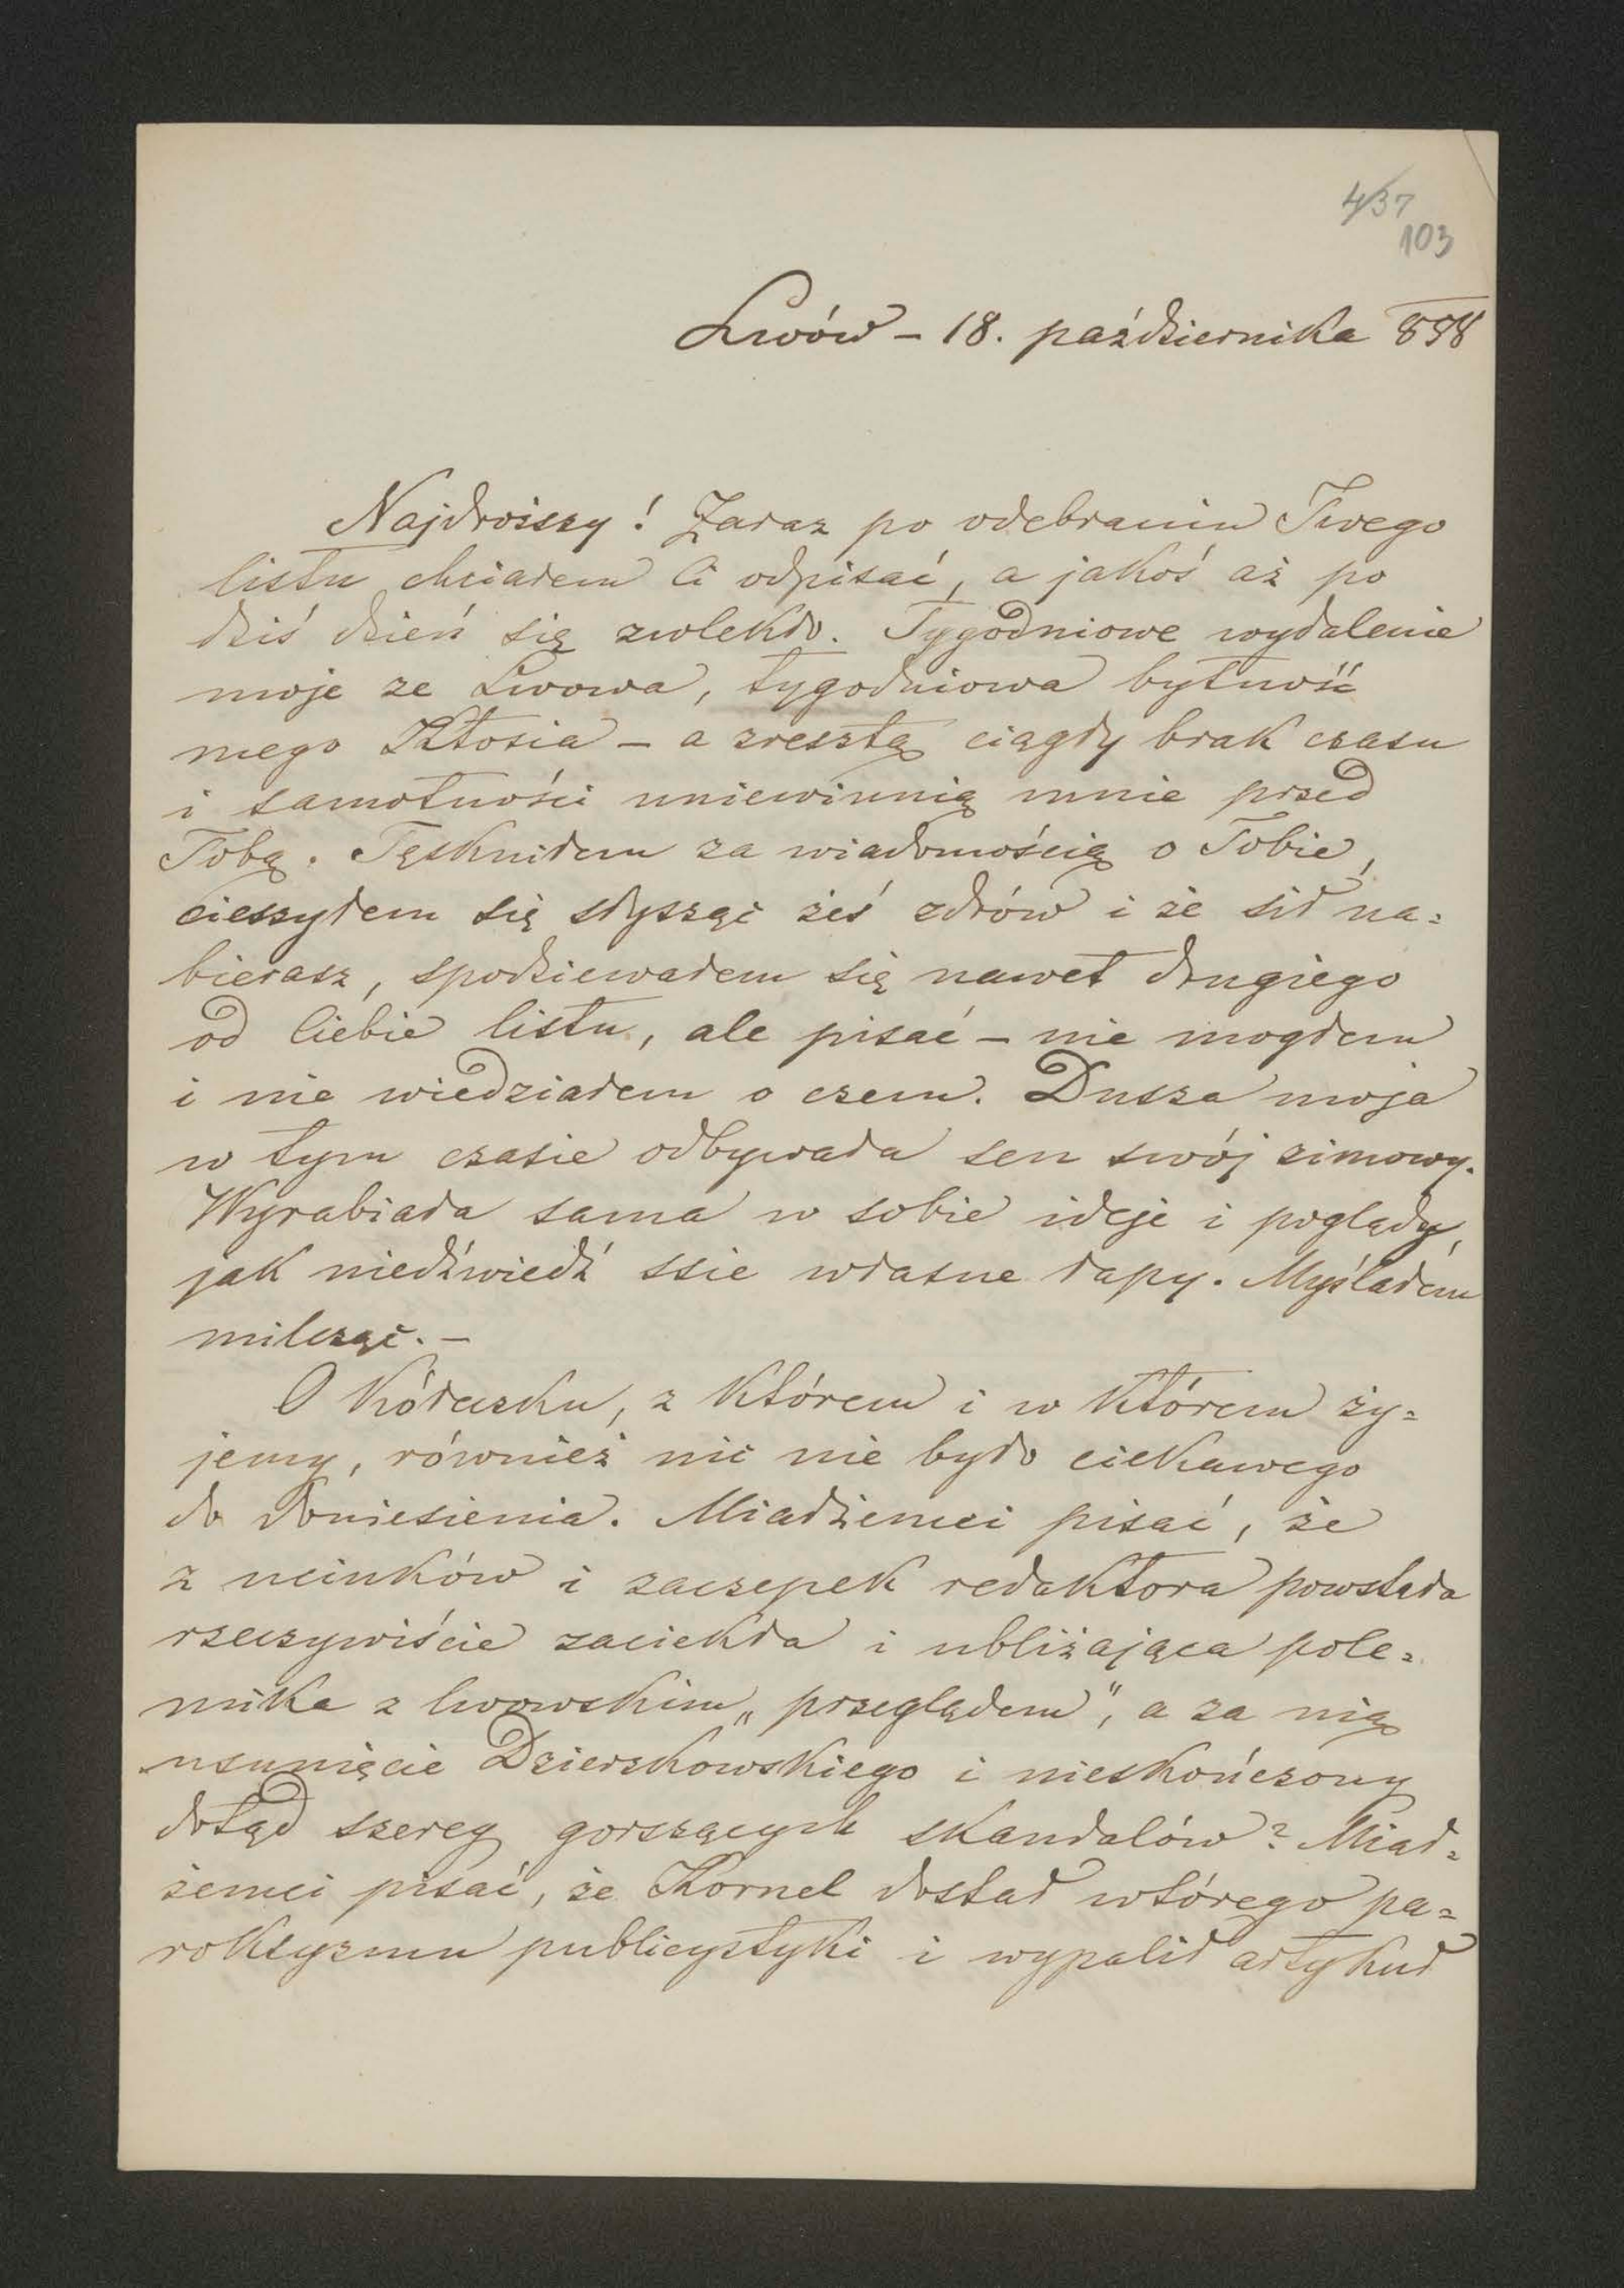 4/37
103
Lwów – 18. października 858
Najdroższy! Zaraz po odebraniu Twego
listu chciałem Ci odpisać, a jakoś aż po
dziś dzień się zwlekło. Tygodniowe wydalenie
moje ze Lwowa, tygodniowa bytność
mego Ktosia – a zresztą ciągły brak czasu
i samotności uniewinnią mnie przed
Tobą. Tęskniłem za wiadomością o Tobie,
cieszyłem się słysząc żeś zdrów i że sił na=
bierasz, spodziewałem się nawet drugiego
od Ciebie listu, ale pisać – nie mogłem
i nie wiedziałem o czem. Dusza moja
w tym czasie odbywała sen swój zimowy.
Wyrabiała sama w sobie ideje i poglądy,
jak niedźwiedź ssie własne łapy. Myślałem
milcząc. –
O kółeczku, z którem i w którem ży=
jemy, również nic nie było ciekawego
do doniesienia. Miałżemci pisać, że
z ucinków i zaczepek redaktora powstała
rzeczywiście zaciekła i ubliżająca pole=
mika z lwowskim „przeglądem", a za nią
usunięcie Dzierzkowskiego i nieskończony
dotąd szereg gorszących skandalów? Miał=
żemci pisać, że Kornel dostał wtórego pa=
roksyzmu publicystyki i wypalił artykuł